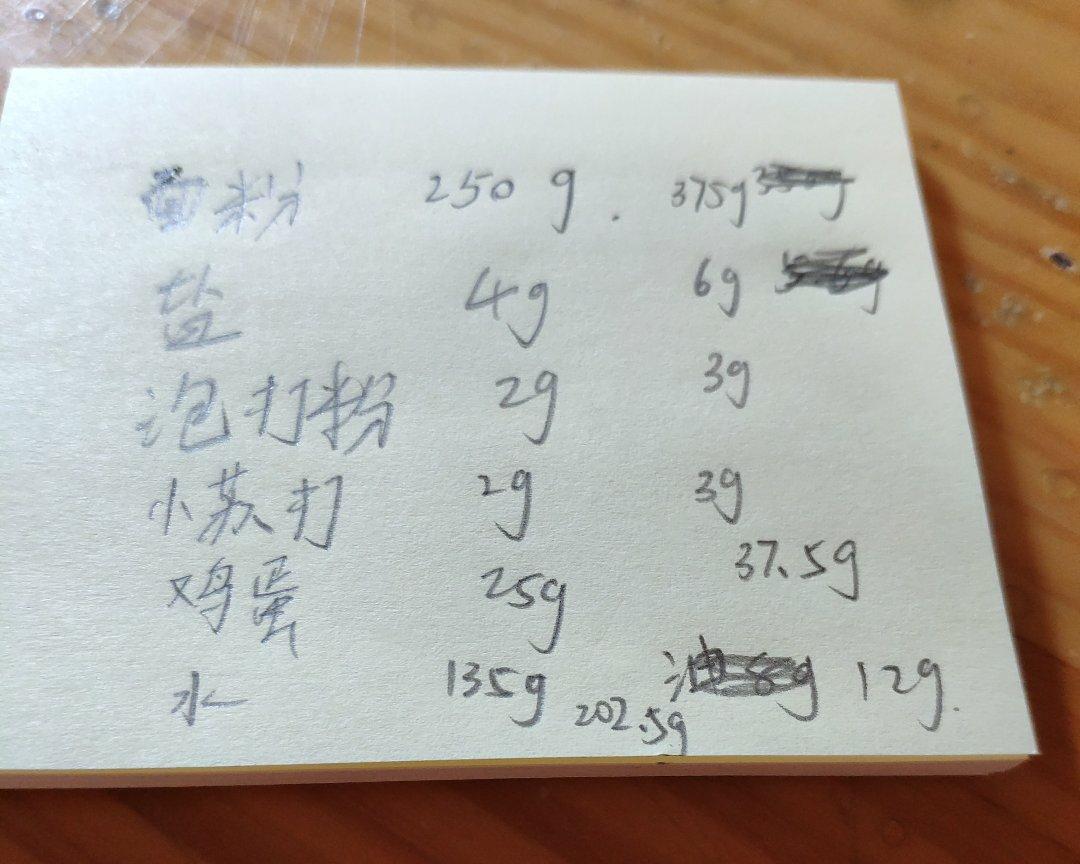 面粉 250g. 375g
盐 4g 6g
泡打粉 2g 3g
小苏打 2g 3g
鸡蛋 25g 37.5g
水 135g 202.5g 油 12g.